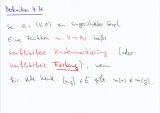 Definition 4.30
Sei G = (V,E) ein ungerichteter Graf.
Eine Funktion m: V → N heißt
konfliktfreie Knotenmarkierung (oder
konfliktfreie Färbung), wenn
für alle Kanten {x,y} ∈ E gilt: m(x) ≠ m(y).